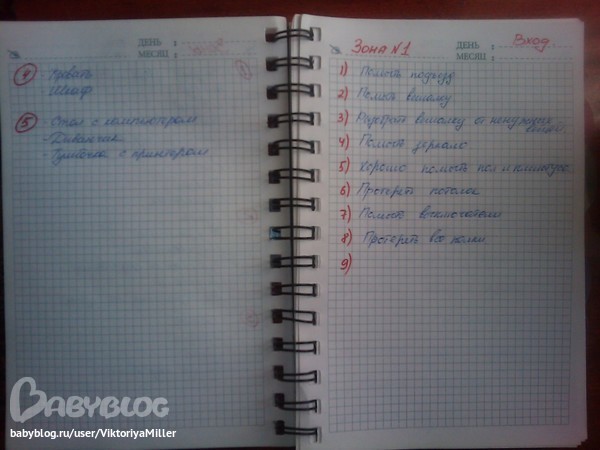 ДЕНЬ :
МЕСЯЦ :
4 - Кровать
Шкаф
5 - Стол с компьютером
- Диванчик
- Тумбочка с принтером
Зона №1
ДЕНЬ : Вход
МЕСЯЦ :
1) Помыть подъезд
2) Помыть вешалку
3) Разобрать вешалку от ненужных
вещей
4) Помыть зеркало
5) Хорошо помыть пол и плинтус
6) Протереть потолок
7) Помыть выключатели
8) Протереть все полки
9)
BABYBLOG
babyblog.ru/user/ViktoriyaMiller